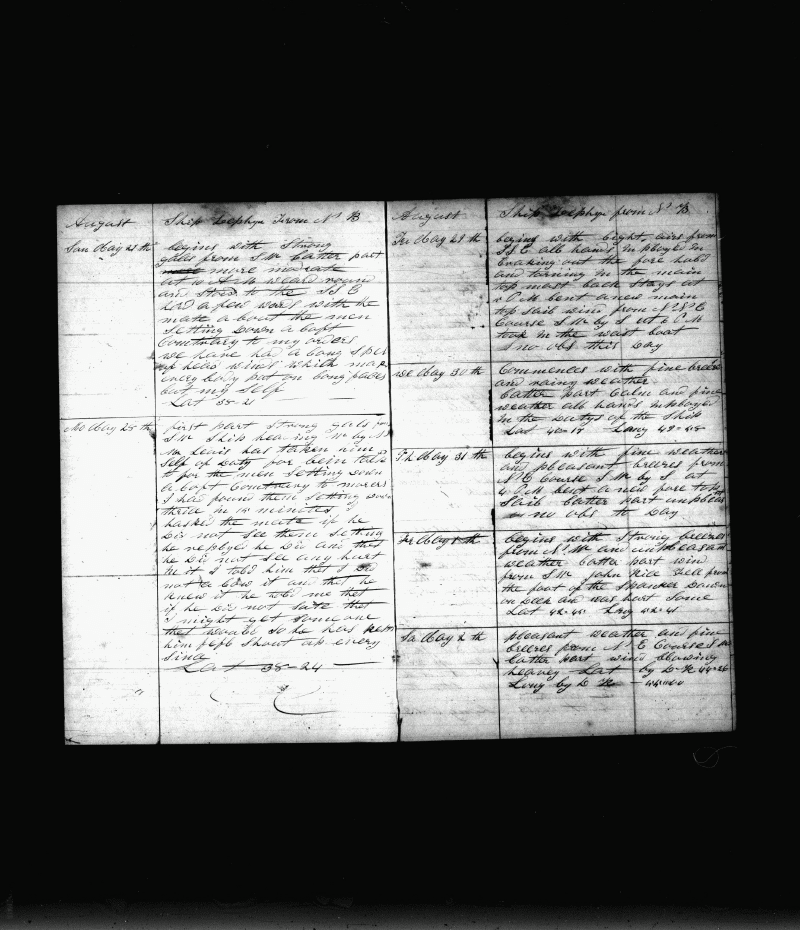 August
Ship Zephyr From N B
Sun day 27 th
begins with Strong
gales from S W Latter part
more moderate
at 10 A M weard round
and Stood to the S S E
had a few words with the
mate about the men
Setting down a baft
Contrary to my orders
we have had a Long Spel
of head winds which makes
every body put on Long faces
but my Self
Lat 38-21
Mo day 28 th
first part Strong gales from
S W Ship heading W by N
Mr Lewis has taken him
Self of duty for bein talk
to for the men Setting down
a baft Contrary to my orders
I had found them Setting down
thrice in 15 minutes I
hasked the mate if he
did not See them Setting
he replyed he did and that
he did not See any hurt
in it I told him that I did
not a Low it and that he
knew it he told me that
if he did not Sute that
I might get Some one
that would So he has kept
him Self Shout up every
Sinc
Lat 38-24
August
Ship Zephyr from N B
day 29 th
begins with Light airs from
S S E all hands imployed in
braking out the fore hold
and turning in the main
top mast back Stays at
P M bent a new main
top Sail wind from N N E
Course S W by S at 6 P M
took in the waist boat
no obs this Day
We day 30 th
Commences with fine breeze
and rainy weather
Latter part Calm and fine
weather all hands imployed
in the dutys of the Ship
Lat 40-17 Long 49-48
Th day 31 th
begins with fine weather
and pleasant breezes from
N E Course S W by S at
4 P M bent a new fore top
Sail Latter part unpleasant
no obs to Day
Fr day 1 th
begins with Strong breezes
from N W and unpleasant
weather Latter part wind
from S W John Rice fell from
the foot of the Spanker down
on deck and was hurt Some
Lat 42-40 Long 42-41
Sa day 2 th
pleasant weather and fine
breezes from N E Course S W
Latter part wind blowing
heavey Lat by D R 44-26
Long by D R